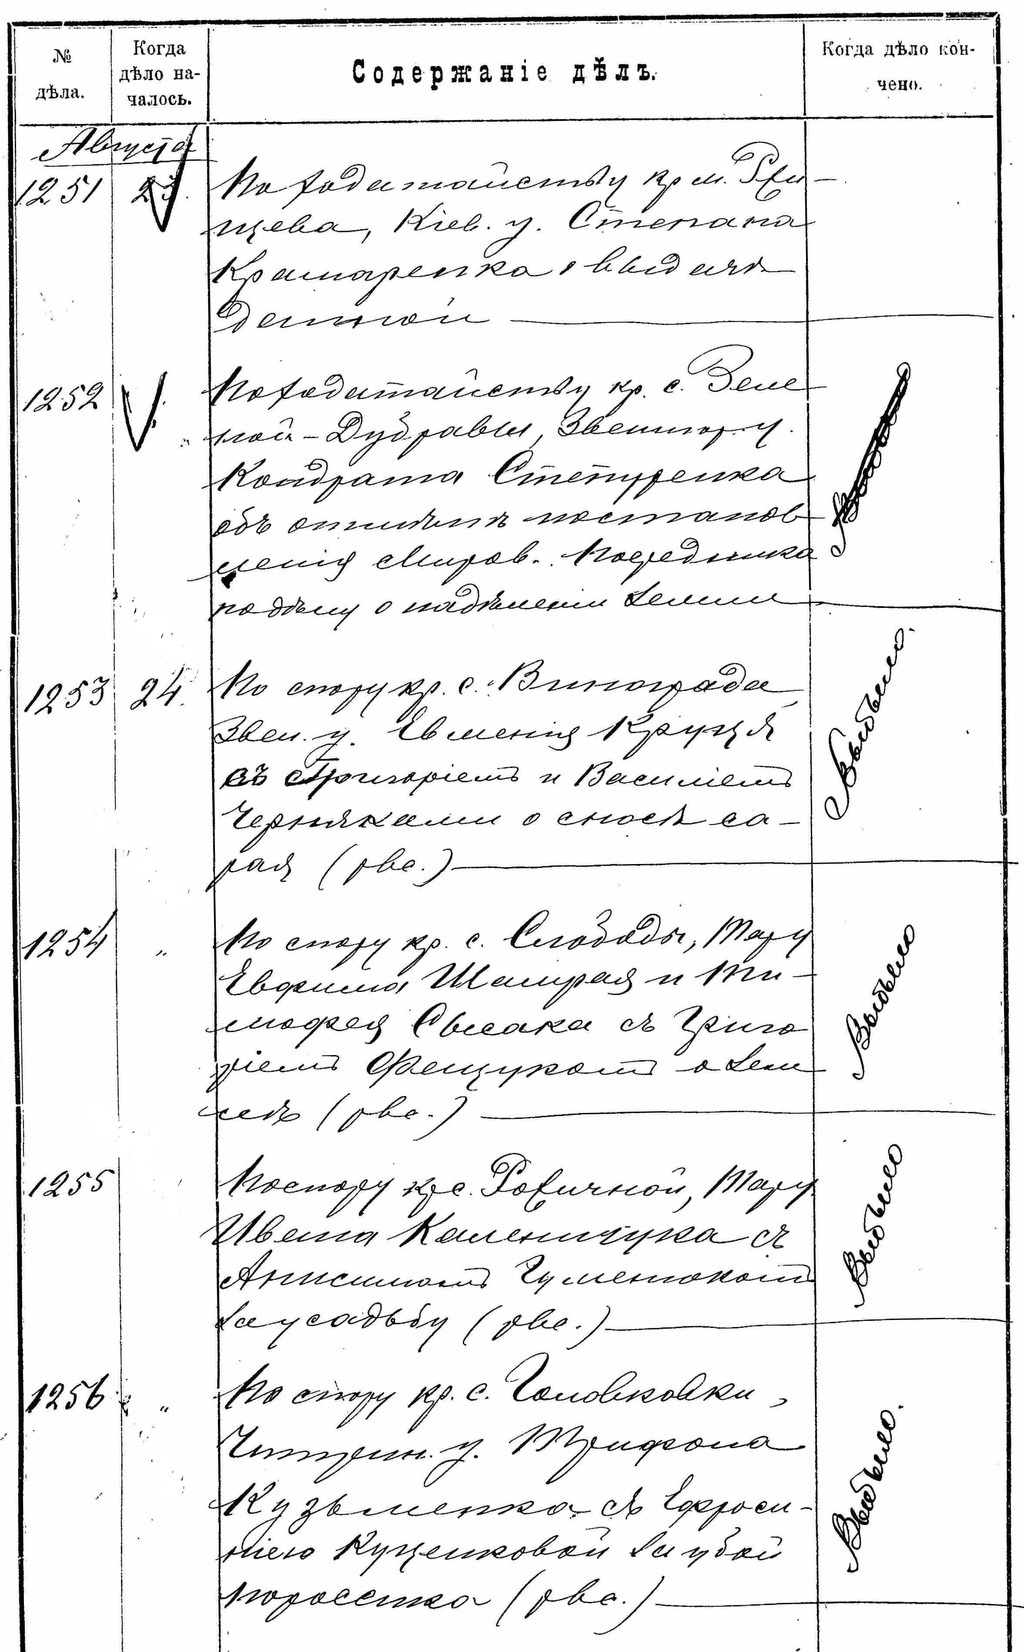 № дѣла.
Когда дѣло началось.
Содержаніе дѣлъ.
Когда дѣло кончено.
Августа
1251 23. По ходатайству кр. м. Ржи-
щева, Кіев. у. Степана
Крамаренка о выдачѣ
данной
1252 " По ходатайству кр. с. Зеле-
ной-Дубравы, Звениг. у.
Кондрата Стетуренка
объ отмѣнѣ постанов-
ленія Миров. Посредника
по дѣлу о надѣленіи землею
1253 24. По спору кр. с. Винограда,
Звен. у. Евменія Круця
съ Григоріемъ и Василіемъ
Черняками о сносѣ са-
рая (рве.)
Выбыло.
1254 " По спору кр. с. Слободы, Тар. у.
Евфима Шамрая и Ти-
мофея Сысака съ Григо
ріемъ Фещукомъ о зем
лѣ (рве.)
Выбыло
1255 По спору кр. с. Рохичной, Тар. у.
Ивана Каленичука съ
Анисимомъ Гуменюкомъ
за усадьбу (рве.)
Выбыло
1256 " По спору кр. с. Головковки,
Чигирин. у. Трифона
Кузьменка съ Ефроси-
ніею Куценковой за убой
поросенка (рве.)
Выбыло.